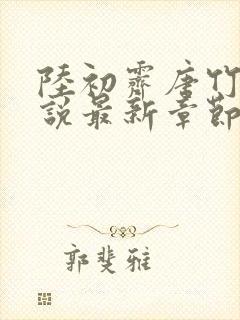 陸初霽唐竹
說最新章節
郭斐雅